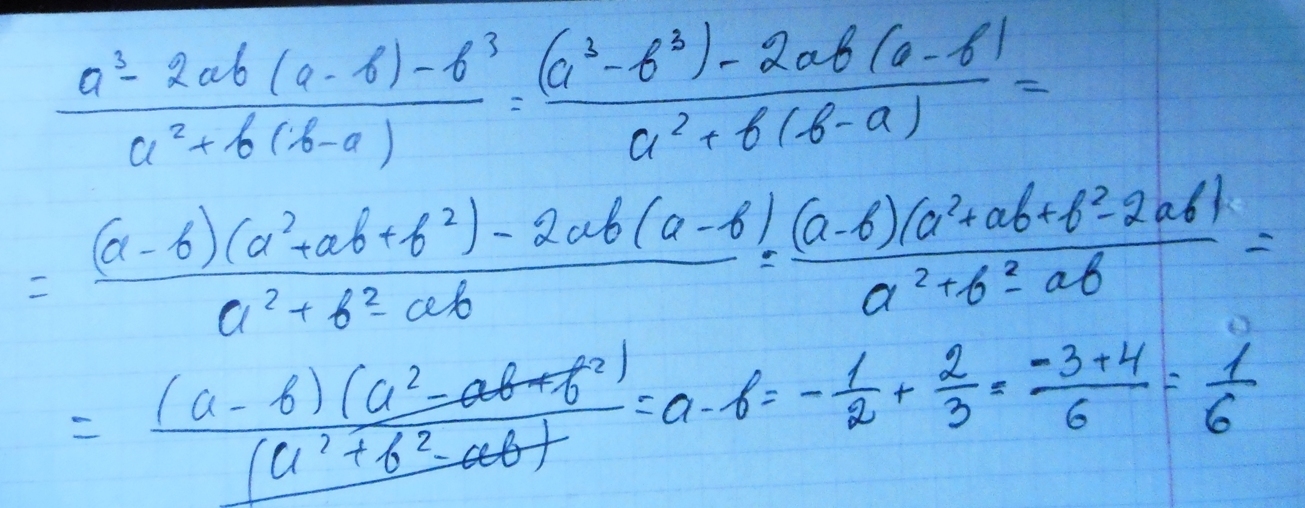 (a³ - 2ab(a - b) - b³)/(a² + b(b - a)) = ((a³ - b³) - 2ab(a - b))/(a² + b(b - a)) =
= ((a - b)(a² + ab + b²) - 2ab(a - b))/(a² + b² - ab) = ((a - b)(a² + ab + b² - 2ab))/(a² + b² - ab) =
= ((a - b)(a² - ab + b²))/((a² + b² - ab)) = a - b = -1/2 + 2/3 = (-3 + 4)/6 = 1/6